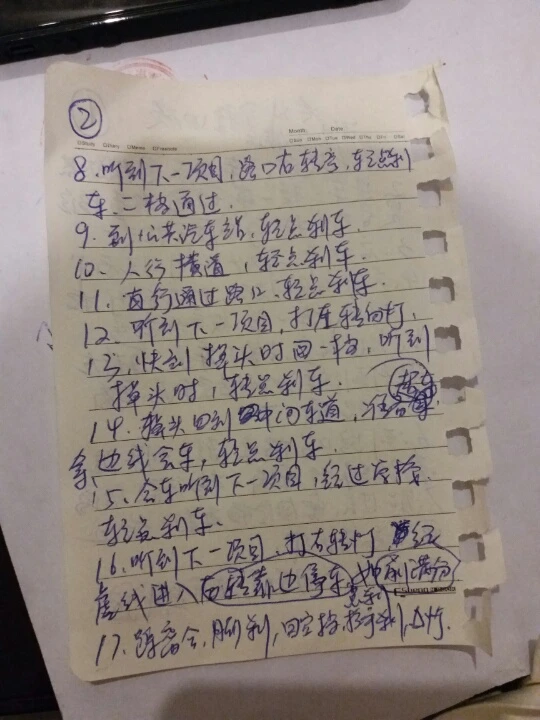 ②
Month: Date:
8.听到下一项目,路口右转弯,轻点刹
车.二档通过.
9.到公共汽车站,轻点刹车.
10、人行横道,轻点刹车.
11.直行通过路口.轻点刹车.
12.听到下一项目,打左转向灯.
13、快到掉头时回一档,听到
掉头时,轻点刹车.
14.掉头回到中间车道,
边线会车,轻点刹车.
15、会车听到下一项目,经过
轻点刹车.
16.听到下一项目.打右转灯.
虚线进入右转靠边停车,
17、踩离合、脚刹,回空档,拉手刹,